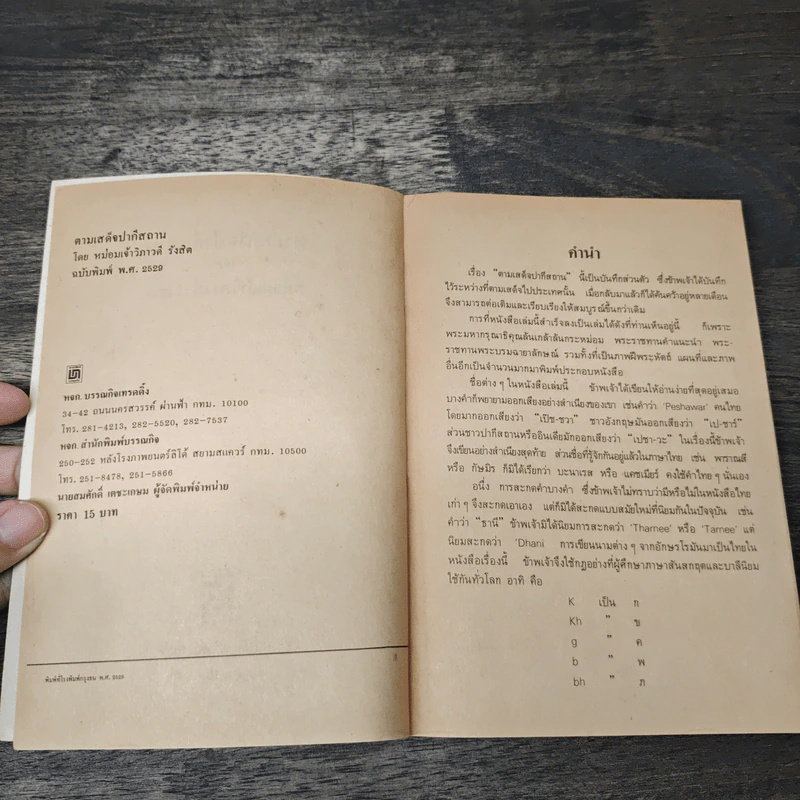 ตามเสด็จปากีสถาน
โดย หม่อมเจ้าวิภาวดี รังสิต
ฉบับพิมพ์ พ.ศ. 2529
หจก. บรรณกิจเทรดดิ้ง
34-42 ถนนนครสวรรค์ ผ่านฟ้า กทม. 10100
โทร. 281-4213, 282-5520, 282-7537
หจก. สำนักพิมพ์บรรณกิจ
250-252 หลังโรงภาพยนตร์ลิโด้ สยามสแควร์ กทม. 10500
โทร. 251-8478, 251-5866
นายสมศักดิ์ เตชะเกษม ผู้จัดพิมพ์จำหน่าย
ราคา 15 บาท
พิมพ์ที่โรงพิมพ์กรุงธน พ.ศ. 2529
คำนำ
เรื่อง "ตามเสด็จปากีสถาน" นี้เป็นบันทึกส่วนตัว ซึ่งข้าพเจ้าได้บันทึก
ไว้ระหว่างที่ตามเสด็จไปประเทศนั้น เมื่อกลับมาแล้วก็ได้ค้นคว้าอยู่หลายเดือน
จึงสามารถต่อเติมและเรียบเรียงให้สมบูรณ์ขึ้นกว่าเดิม
การที่หนังสือเล่มนี้สำเร็จลงเป็นเล่มได้ดังที่ท่านเห็นอยู่นี้ ก็เพราะ
พระมหากรุณาธิคุณล้นเกล้าล้นกระหม่อม พระราชทานคำแนะนำ พระ-
ราชทานพระบรมฉายาลักษณ์ รวมทั้งที่เป็นภาพฝีพระหัตถ์ แผนที่และภาพ
อื่นอีกเป็นจำนวนมากมาพิมพ์ประกอบหนังสือ
ชื่อต่าง ๆ ในหนังสือเล่มนี้ ข้าพเจ้าได้เขียนให้อ่านง่ายที่สุดอยู่เสมอ
บางคำก็พยายามออกเสียงอย่างสำเนียงของเขา เช่นคำว่า 'Peshawar' คนไทย
โดยมากออกเสียงว่า "เป๊ช-ชวา" ชาวอังกฤษมันออกเสียงว่า "เป-ชาร์"
ส่วนชาวปากีสถานหรืออินเดียมักออกเสียงว่า "เปชา-วะ" ในเรื่องนี้ข้าพเจ้า
จึงเขียนอย่างสำเนียงสุดท้าย ส่วนชื่อที่รู้จักกันอยู่แล้วในภาษาไทย เช่น พาราณสี
หรือ กัษมิร ก็มิได้เรียกว่า บะนาเรส หรือ แคชเมียร์ คงใช้คำไทย ๆ นั่นเอง
อนึ่ง การสะกดคำบางคำ ซึ่งข้าพเจ้าไม่ทราบว่ามีหรือไม่ในหนังสือไทย
เก่า ๆ จึงสะกดเอาเอง แต่ก็มิได้สะกดแบบสมัยใหม่ที่นิยมกันในปัจจุบัน เช่น
คำว่า "ธานี" ข้าพเจ้ามิได้นิยมการสะกดว่า 'Tharnee' หรือ 'Tarnee' แต่
นิยมสะกดว่า 'Dhani การเขียนนามต่าง ๆ จากอักษรโรมันมาเป็นไทยใน
หนังสือเรื่องนี้ ข้าพเจ้าจึงใช้กฎอย่างที่ผู้ศึกษาภาษาสันสกฤตและบาลีนิยม
ใช้กันทั่วโลก อาทิ คือ
K เป็น ก
Kh " ข
g " ค
b " พ
bh " ภ